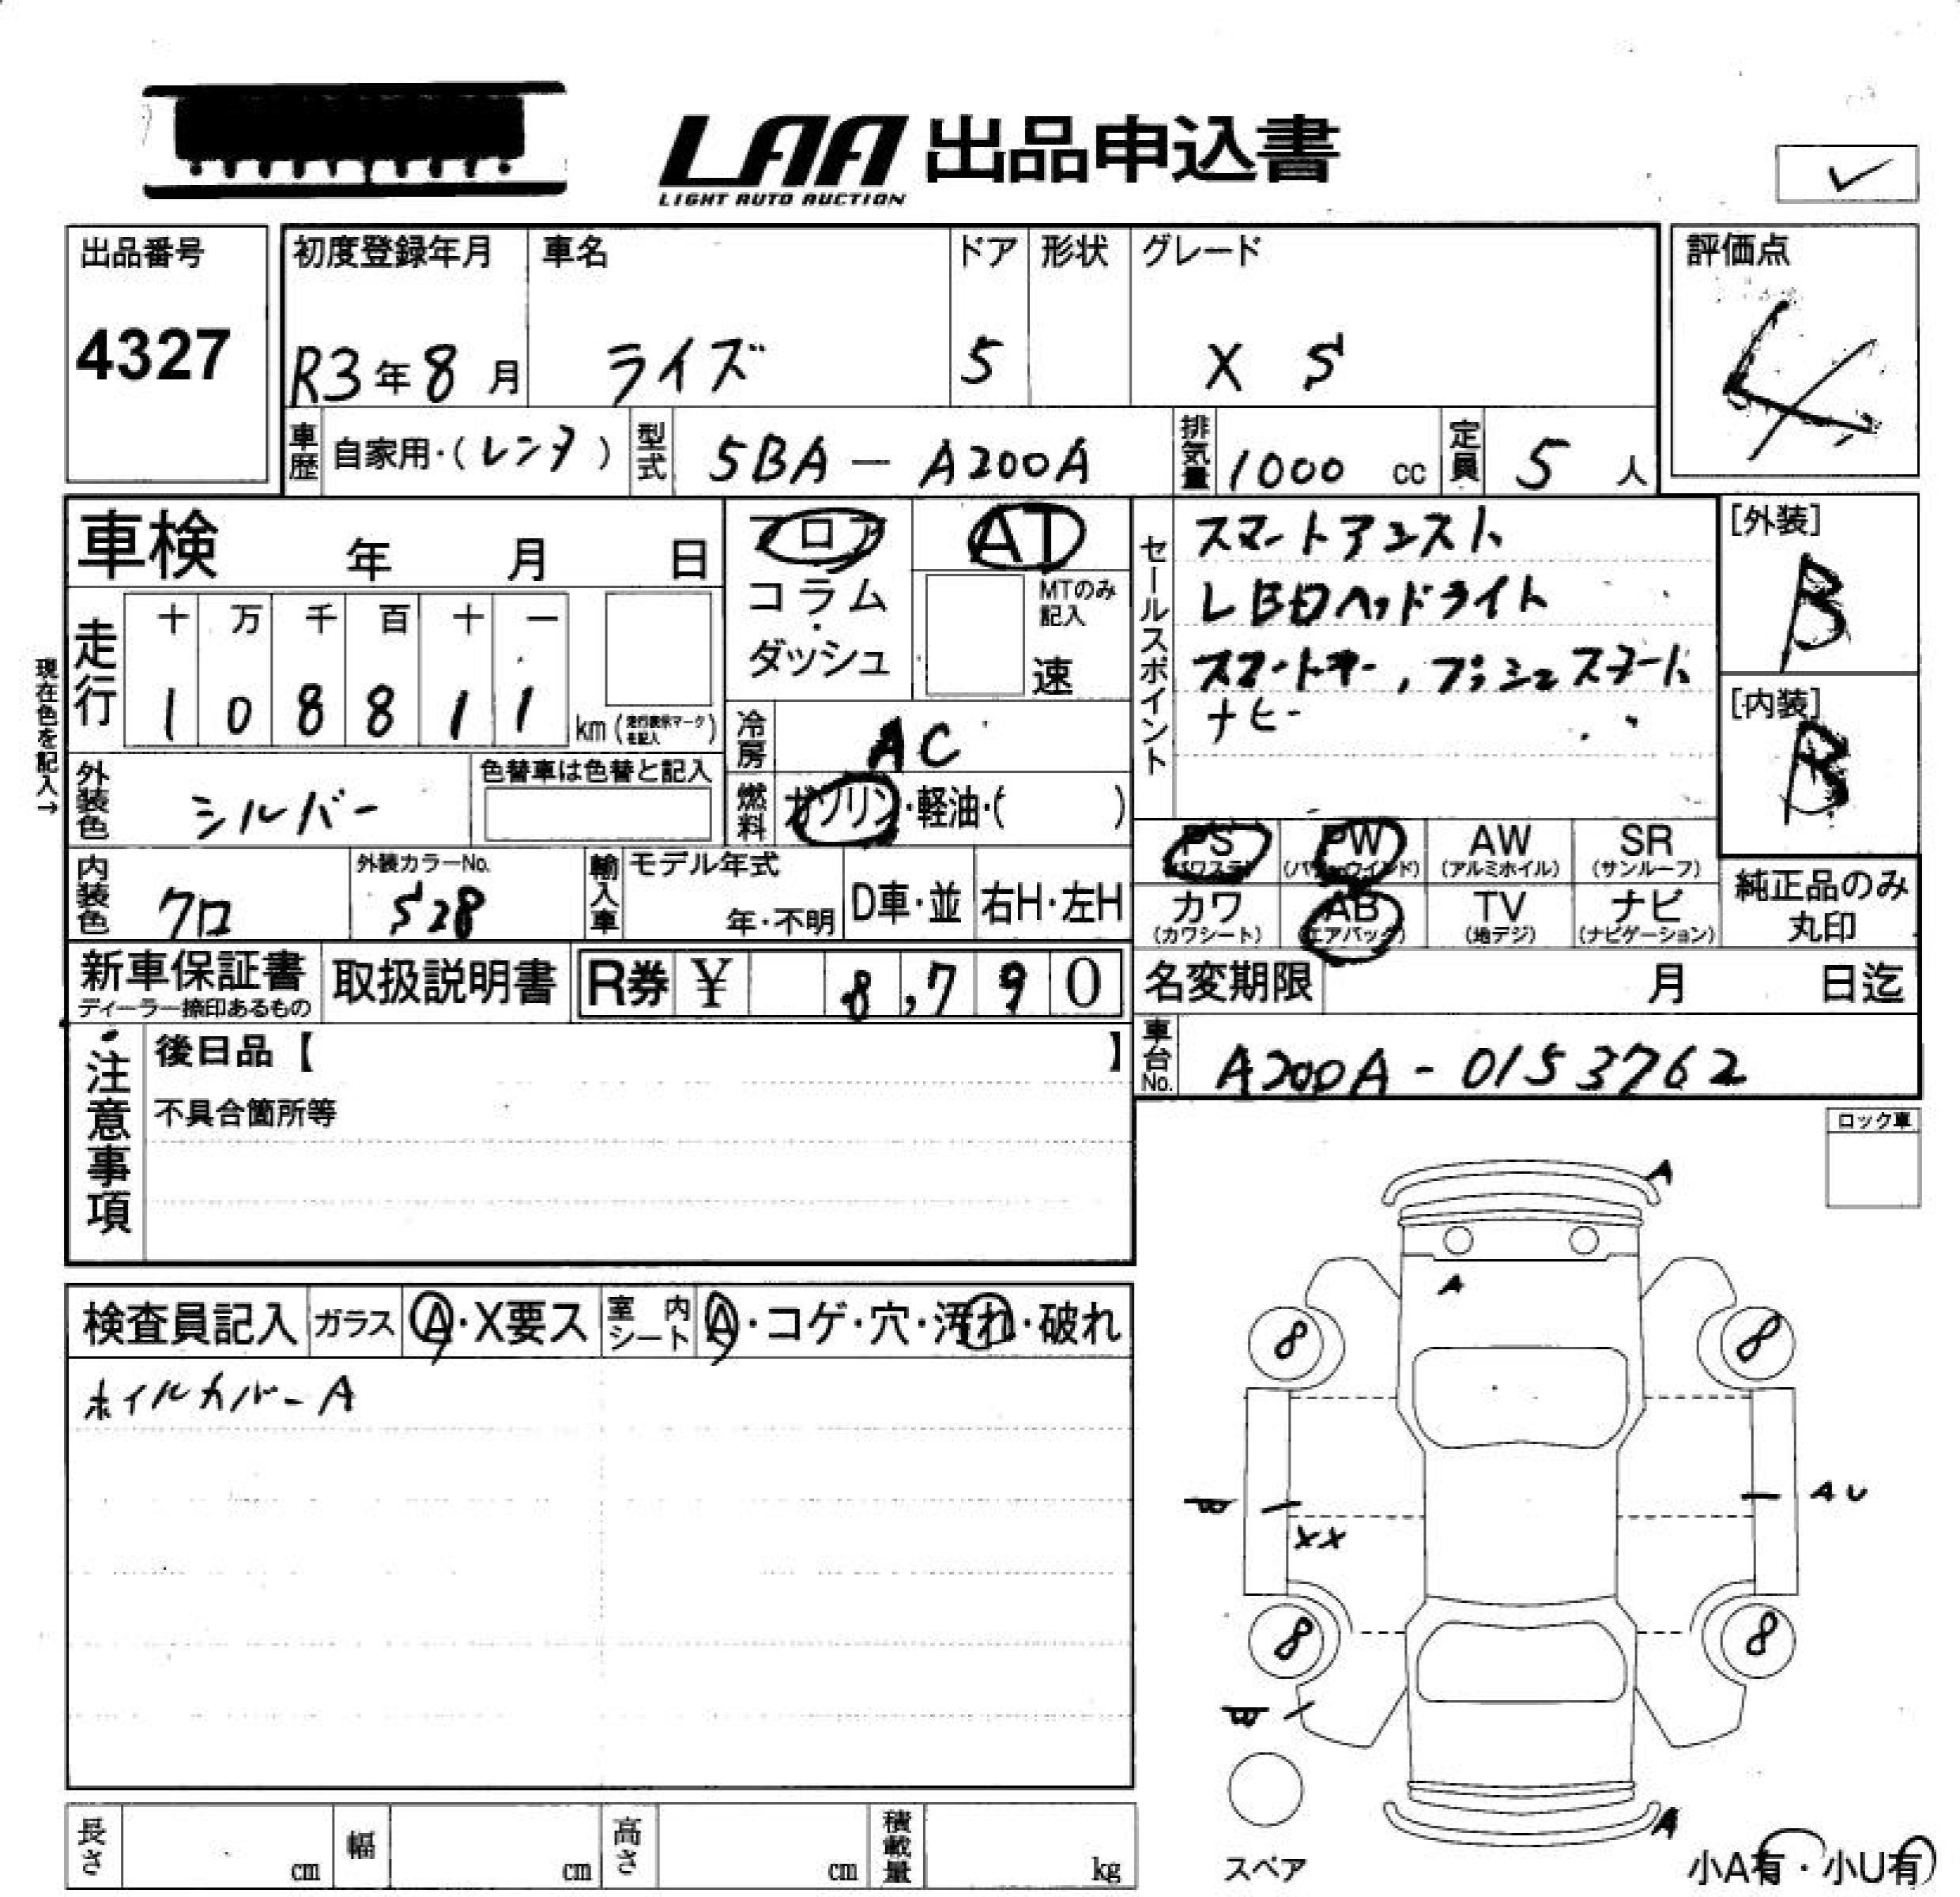 LAA 出品申込書
LIGHT AUTO AUCTION
出品番号 初度登録年月 車名 ドア 形状 グレード 評価点
4327 R3年8月 ライズ 5 X S 4
車歴 自家用・(レンタ) 型式 5BA-A200A 排気量 1000 cc 定員 5 人
車検 年 月 日
フロア AT
コラム・ダッシュ
MTのみ記入
速
セールスポイント
スマートアシスト
LEDヘッドライト
スマートキー, プッシュスタート
ナビ
[外装]
B
[内装]
B
現在色を記入→
走行 十 万 千 百 十 一
1 0 8 8 1 1 km (走行表示マークを記入)
冷房 AC
外装色 シルバー 色替車は色替と記入
燃料 ガソリン・軽油・( )
PS (パワステ) PW (パワーウインド) AW (アルミホイル) SR (サンルーフ)
カワ (カワシート) AB (エアバック) TV (地デジ) ナビ (ナビゲーション)
純正品のみ丸印
内装色 クロ 外装カラーNo. S28 輸入車 モデル年式 年・不明 D車・並 右H・左H
新車保証書 ディーラー捺印あるもの 取扱説明書 R券 ¥ 8,790
名変期限 月 日迄
車台No. A200A-0153762
注意事項
後日品【 】
不具合箇所等
ロック車
検査員記入 ガラス A・X要ス 室内シート A・コゲ・穴・汚れ・破れ
ホイルカバーA
A
A
8 8
AU
XX
8 8
A
スペア
小A有・小U有
長さ cm 幅 cm 高さ cm 積載量 kg